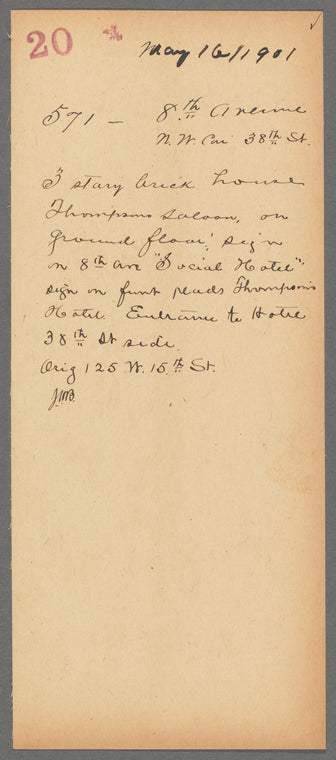 20
May 16/1901
571 – 8th Avenue
N.W. Cor 38th St.
3 story brick house
Thompsons saloon, on
ground floor; sign
on 8th ave "Social Hotel"
sign on front reads Thompson's
Hotel. Entrance to Hotel
38th St side.
Orig 125 W. 15th St.